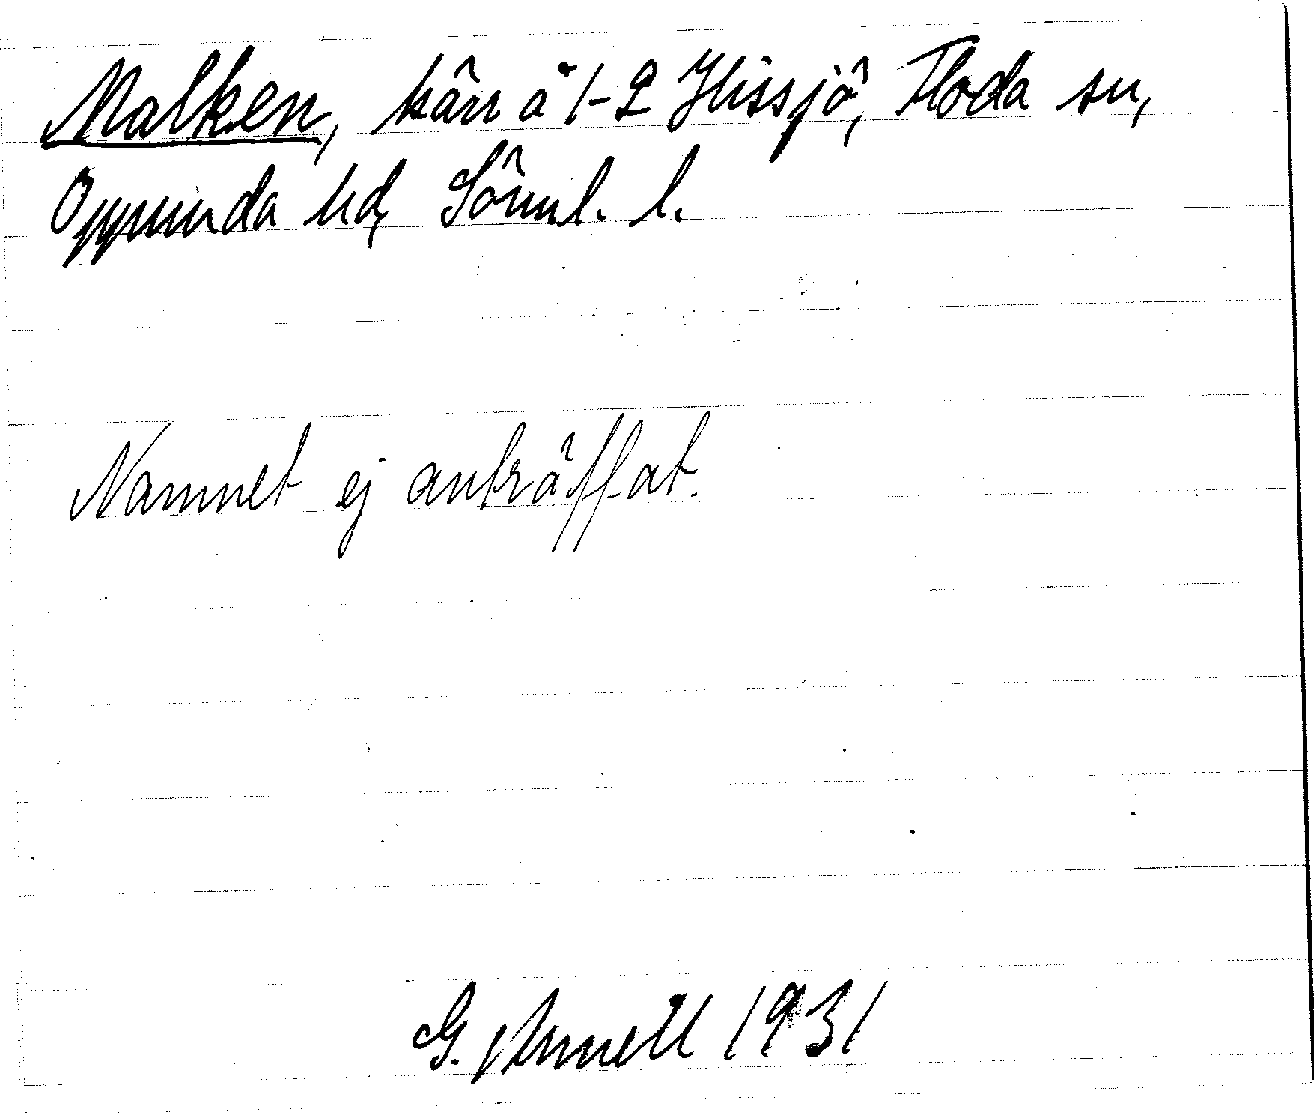 Malken, kärr å 1-2 Hissjö, Floda sn,
Oppunda hd, Söml. l.
Namnet ej anträffat.
G. Arnell 1931